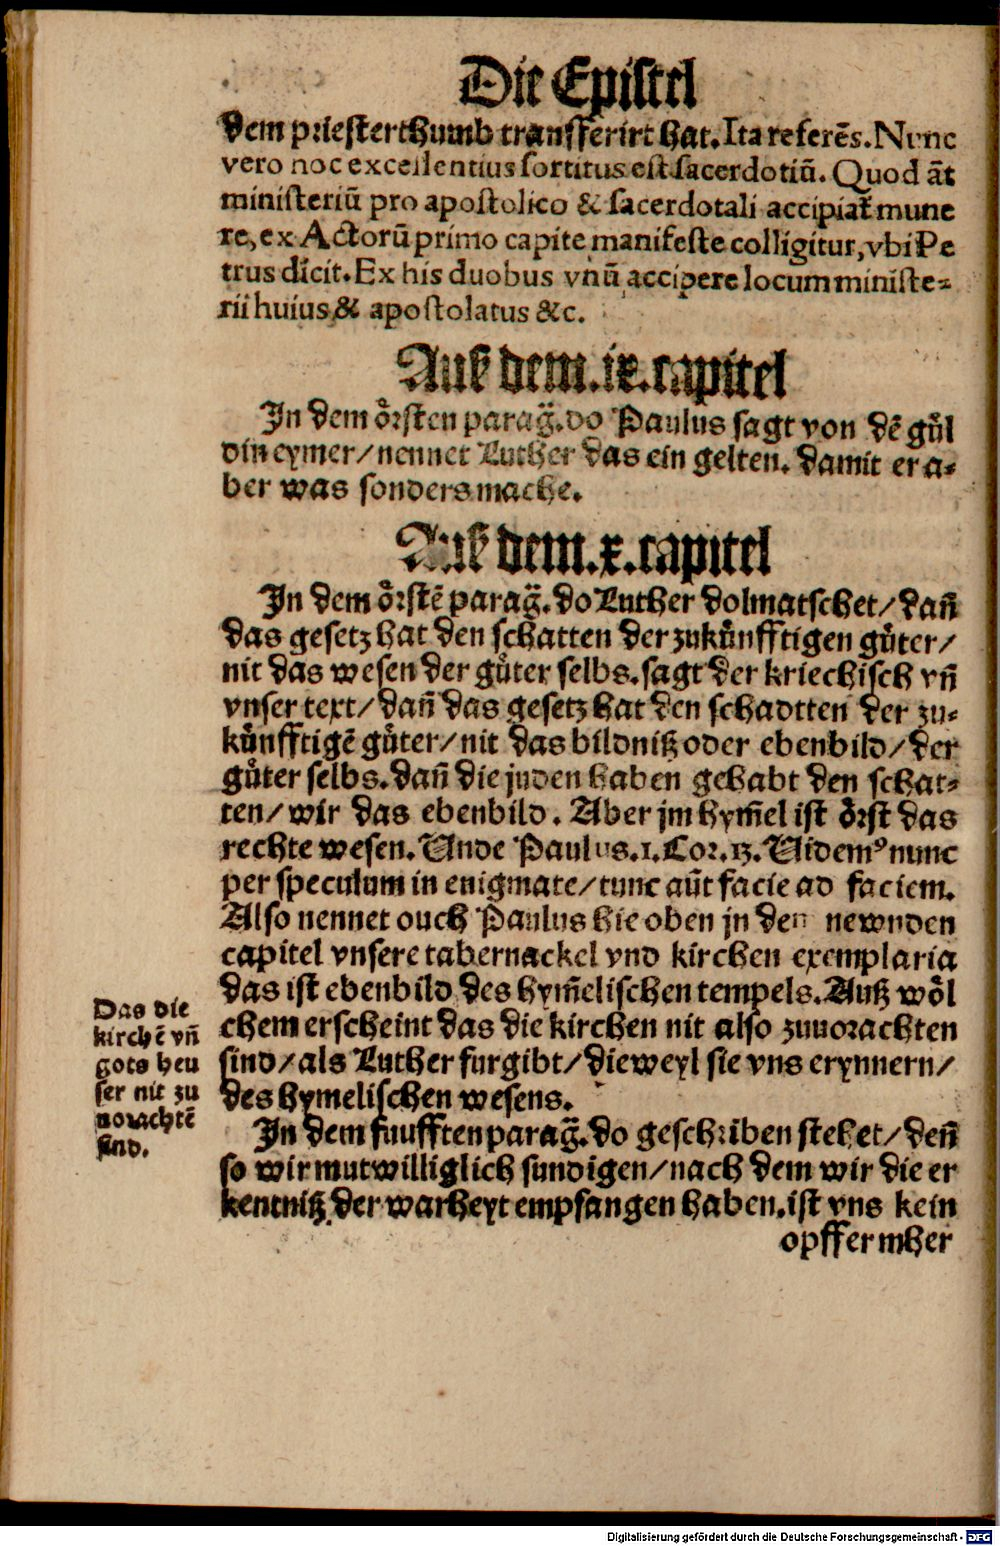 Die Epistel
dem priesterthumb transfferirt hat. Ita referēs. Nunc
vero noc excellentius sortitus est sacerdotiū. Quod āt
ministeriū pro apostolico & sacerdotali accipiat mune
re, ex Actorū primo capite manifeste colligitur, vbi Pe
trus dicit. Ex his duobus vnū accipere locum ministe⸗
rii huius & apostolatus &c.
Auß dem .ix. capitel
In dem oͤrsten parag̃. do Paulus sagt von dē guͤl
din eymer / nennet Luther das ein gelten. damit er a⸗
ber was sonders mache.
Auß dem .x. capitel
In dem oͤrstē parag̃. do Luther dolmatschet / dañ
das gesetz hat den schatten der zukuͤnfftigen guͤter /
nit das wesen der guͤter selbs. sagt der kriechisch vñ
vnser text / dañ das gesetz hat den schadtten der zu⸗
kuͤnfftigē guͤter / nit das bildnitz oder ebenbild / der
guͤter selbs. dañ die juden haben gehabt den schat⸗
ten / wir das ebenbild. Aber jm hym̄el ist oͤrst das
rechte wesen. Unde Paulus .1. Cor. 13. Uidemꝰ nunc
per speculum in enigmate / tunc aūt facie ad faciem.
Also nennet ouch Paulus hie oben jn den newnden
capitel vnsere tabernackel vnd kirchen exemplaria
das ist ebenbild des hym̄elischen tempels. Autz woͤl
chem erscheint das die kirchen nit also zuuorachten
sind / als Luther furgibt / dieweyl sie vns erynnern /
des hymelischen wesens.
Das die
kirchē vñ
gots heu
ser nit zu
uorachtē
sind.
In dem fuufften parag̃. do geschriben stehet / deñ
so wir mutwilliglich sundigen / nach dem wir die er
kentnitz der warheyt empfangen haben. ist vns kein
opffer mher
Digitalisierung gefördert durch die Deutsche Forschungsgemeinschaft - DFG